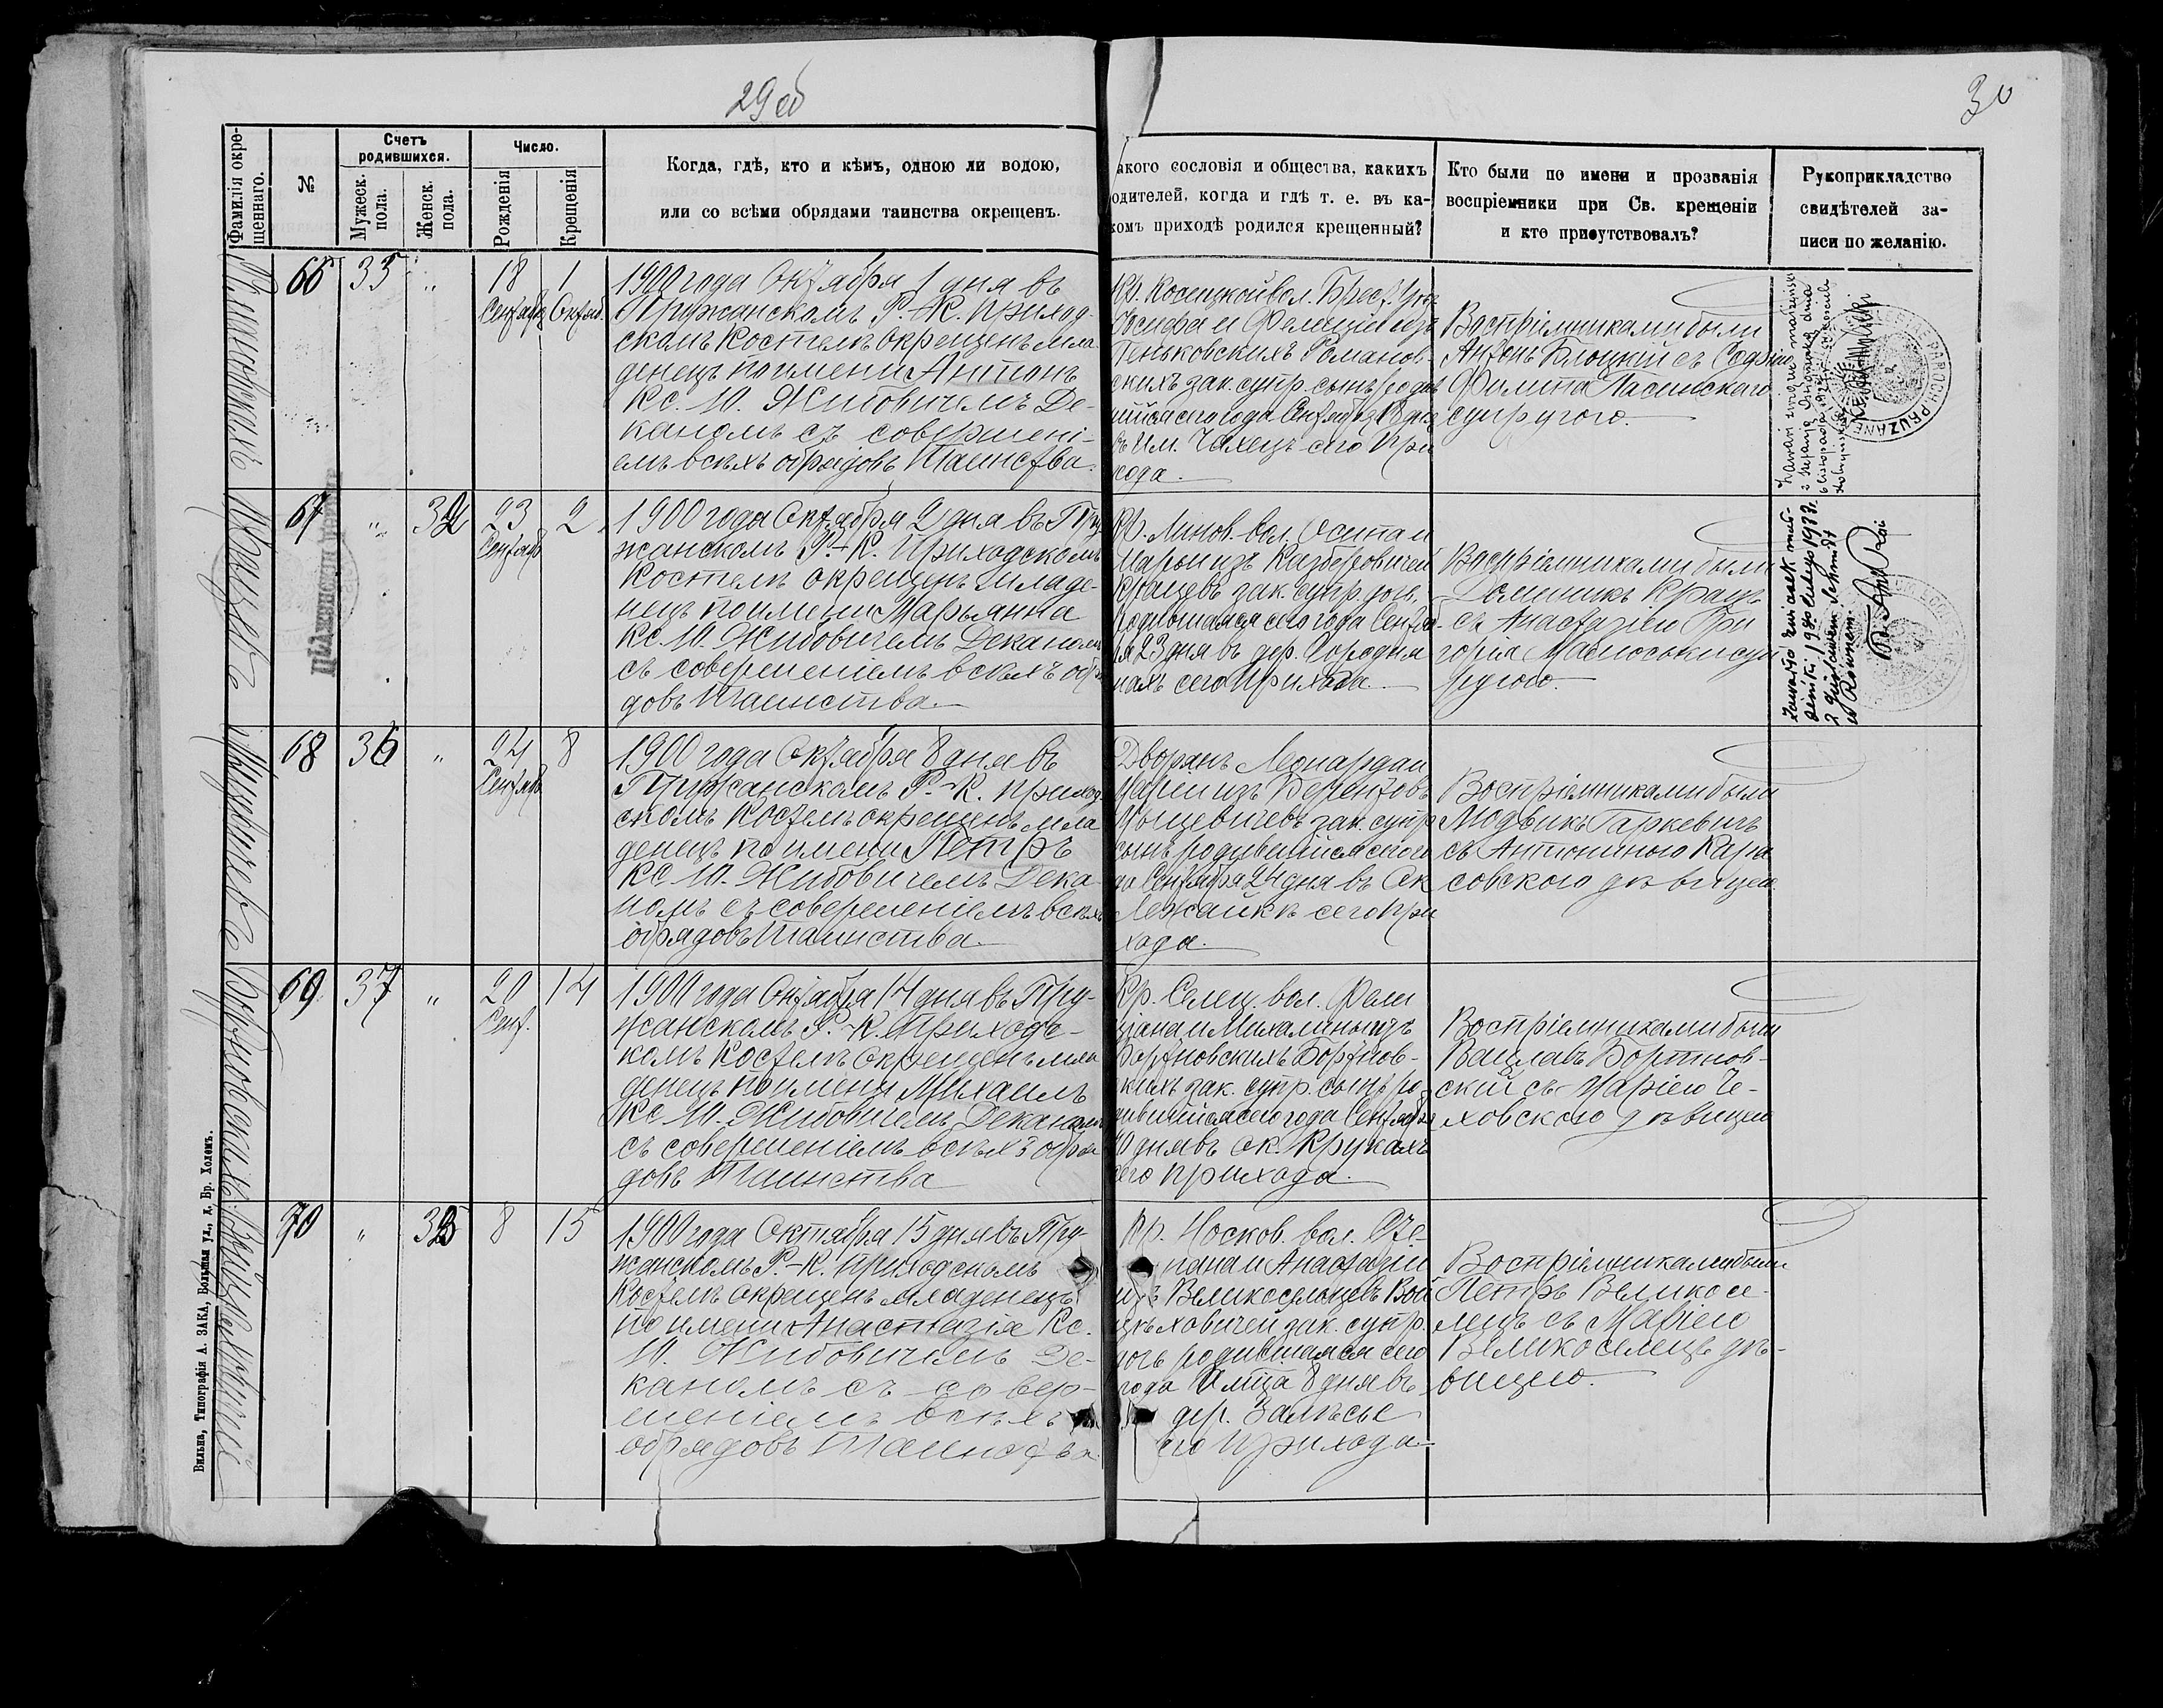 29 об
30
Фамилія окре-
щеннаго.
№
Счетъ
родившихся.
Мужеск.
пола.
Женск.
пола.
Число.
Рожденія
Крещенія
Когда, гдѣ, кто и кѣмъ, одною ли водою,
или со всѣми обрядами таинства окрещенъ.
акого сословія и общества, какихъ
одителей, когда и гдѣ т. е. въ ка-
комъ приходѣ родился крещенный?
Кто были по имени и прозванія
воспріемники при Св. крещеніи
и кто присутствовалъ?
Рукоприкладство
свидѣтелей за-
писи по желанію.
Романовскихъ
66
35
"
18
Сентября
1
Октяб.
1900 года Октября 1 дня въ
Пружанскомъ Р.-К. Приход-
скомъ Костелѣ окрещенъ мла-
денецъ по имени Антонъ
Кс. Ю. Житовичемъ Де-
каномъ съ совершені-
емъ всѣхъ обрядовъ Таинства.
Кр. Косицкой вол. Брест. у.
Іосифа и Фелиціи изъ
Пеньковскихъ Романов-
скихъ зак. супр. сынъ родив
шійся сего года Сентября 18 дня
въ им. Чахецъ сего При
хода.
Воспріемниками были
Антонъ Блоцкій съ Софіею
Филипа Ласинскаго
супругою.
Кравцевъ
67
"
32
23
Сентяб
2
1900 года Октября 2 дня въ Пру
жанскомъ Р.-К. Приходскомъ
Костелѣ окрещенъ младе-
нецъ по имени Марьянна
Кс. Ю. Житовичемъ Деканомъ
съ совершеніемъ всѣхъ обря
довъ Таинства.
Кр. Линов. вол. Осипа и
Марьи изъ
зак. супр. дочь,
родившаяся сего года Сентяб-
ря 23 дня въ дер. Городня
нахъ сего Прихода.
Воспріемниками были
Доминикъ Кравцъ
съ Анастазіею Гри
горія
пругою.
zawarł związek mał-
żeński
68
36
"
24
Сентяб
8
1900 года Октября 8 дня въ
Пружанскомъ Р.-К. приход
скомъ Костелѣ окрещенъ мла
денецъ по имени Петръ
Кс. Ю. Житовичемъ Дека
номъ съ совершеніемъ всѣхъ
обрядовъ Таинства.
Дворянъ Леонарда и
Маріи изъ
зак. супр
сынъ родившійся сего го
да Сентября 24 дня въ Ок
Лежайкѣ сего При
хода.
Воспріемниками были
Людвикъ Гаркевичъ
съ Антониною Кара
совскою дѣвицею
Бортновскихъ
69
37
"
20
Сент.
14
1900 года Октября 14 дня въ Пру-
жанскомъ Р.-К. Приходс-
комъ Костелѣ окрещенъ мла
денецъ по имени Михаилъ
Кс. Ю. Житовичемъ Деканомъ
съ совершеніемъ всѣхъ обря
довъ Таинства
Кр. Селец. вол. Фели
ціана и Михалины изъ
Бортновскихъ Бортнов-
скихъ зак. супр. сынъ ро-
дившійся сего года Сентября
20 дня въ ок. Крукахъ
сего прихода.
Воспріемниками были
Вацлавъ Бортнов-
скій съ Маріею Че-
ховскою дѣвицею
Войцѣховичей
70
"
33
8
15
1900 года Октября 15 дня въ Пру-
жанскомъ Р.-К. приходскомъ
Костелѣ окрещенъ младенецъ
по имени Анастазія Кс.
Ю. Житовичемъ Де-
каномъ съ совер-
шеніемъ всѣхъ
обрядовъ Таинства
Кр. Носков. вол. Сте-
пана и Анастазіи
изъ Великосельцевъ Вой
цѣховичей зак. супр.
дочь родившаяся сего
года и мѣсяца 8 дня въ
дер. Залѣсье
сего Прихода
Воспріемниками были
Петръ Великосе-
лецъ съ Маріею
Великоселецъ дѣ-
вицею.
Вильна, Типографія А. ЗАКА, Большая ул., д. Бр. Холемъ.